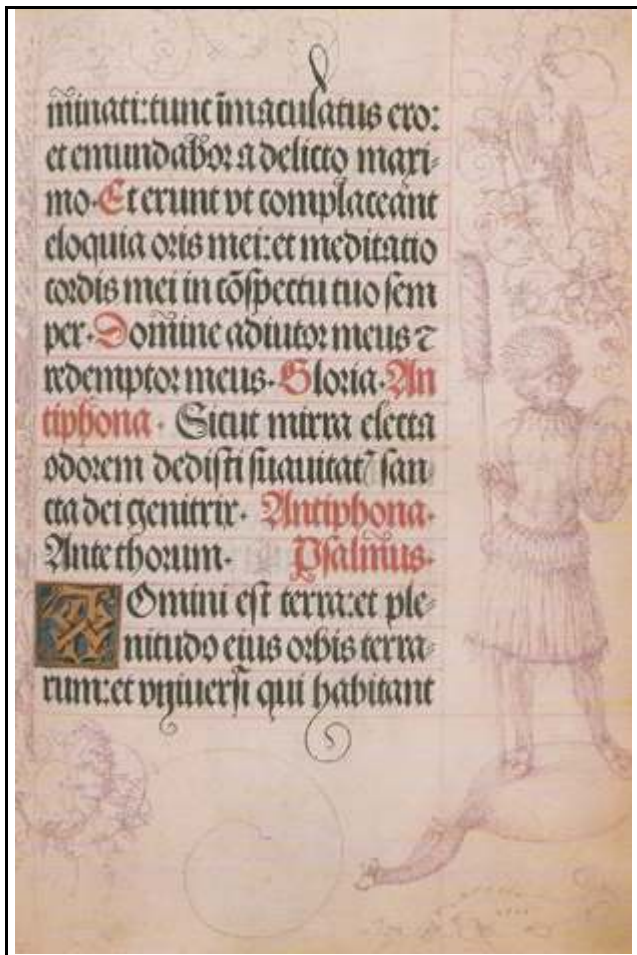 m̄inati:tunc īmaculatus ero:
et emundabor a delicto maxi-
mo. Et erunt vt complaceant
eloquia oris mei:et meditatio
cordis mei in cōspectu tuo sem
per. Dom̄ine adiutor meus ⁊
redemptor meus. Gloria. An
tiphona. Sicut mirra electa
odorem dedisti suauitat̄ san
cta dei genitrix. Antiphona.
Ante thorum. Psalmus.
Domini est terra:et ple-
nitudo eius orbis terra-
rum:et vniuersi qui habitant